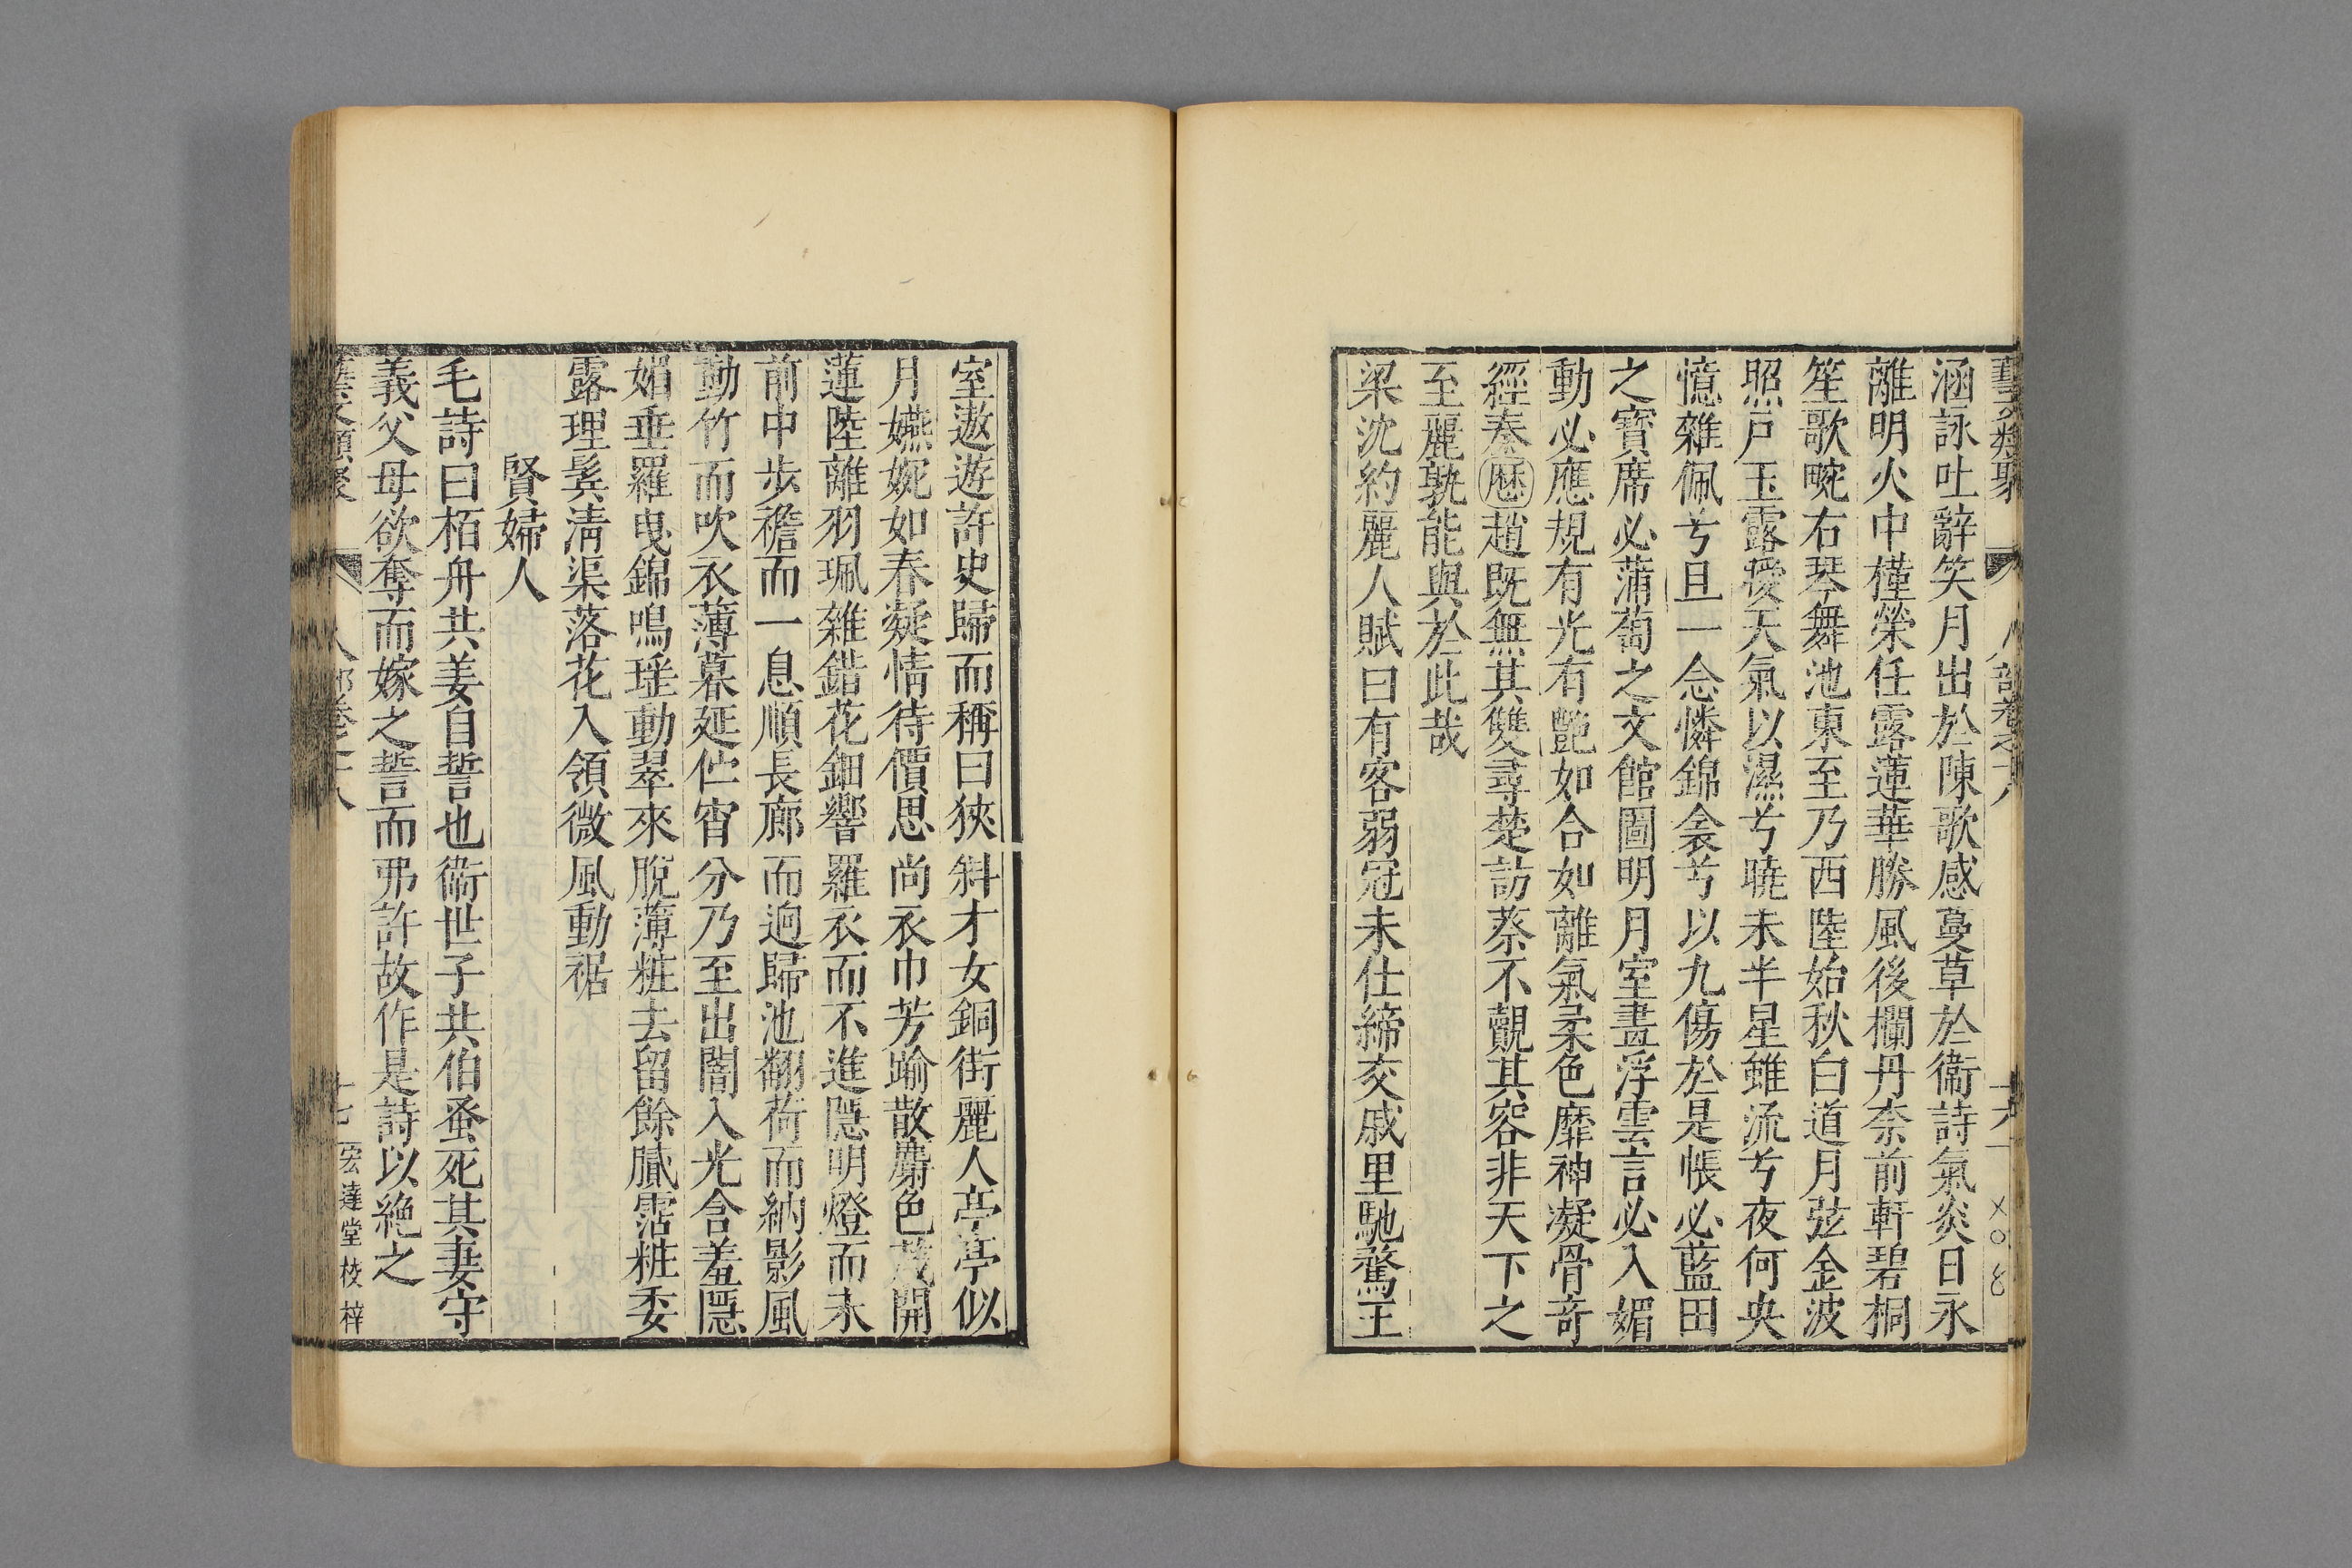 藝文類聚 人部卷之十八 十六
涵詠吐辭笑月出於陳歌感蔓草於衞詩氣炎日永
離明火中槿榮任露蓮華勝風後欄丹柰前軒碧桐
笙歌畹右琴舞池東至乃西陸始秋白道月弦金波
照戸玉露曖天氣以濕兮曉未半星雖流兮夜何央
憶雜佩兮且一念憐錦衾兮以九傷於是帳必藍田
之寶席必蒲萄之文館圖明月室畫浮雲言必入媚
動必應規有光有艶如合如離氣柔色靡神凝骨奇
經秦歷趙既無其雙尋楚訪蔡不覿其容非天下之
至麗孰能與於此哉
梁沈約麗人賦曰有客弱冠未仕締交戚里馳騖王
室遨遊許史歸而稱曰狹斜才女銅街麗人亭亭似
月嬿婉如春凝情待價思尚衣巾芳踰散麝色茂開
蓮陸離羽珮雜錯花鈿響羅衣而不進隱明燈而未
前中步襜而一息順長廊而迴歸池翻荷而納影風
動竹而吹衣薄暮延佇宵分乃至出闇入光含羞隱
媚垂羅曳錦鳴瑤動翠來脫薄粧去留餘膩霑粧委
露理鬓淸渠落花入領微風動裾
賢婦人
毛詩曰栢舟共姜自誓也衞世子共伯蚤死其妻守
義父母欲奪而嫁之誓而弗許故作是詩以絶之
藝文類聚 人部卷之十八 十七 宏達堂校梓